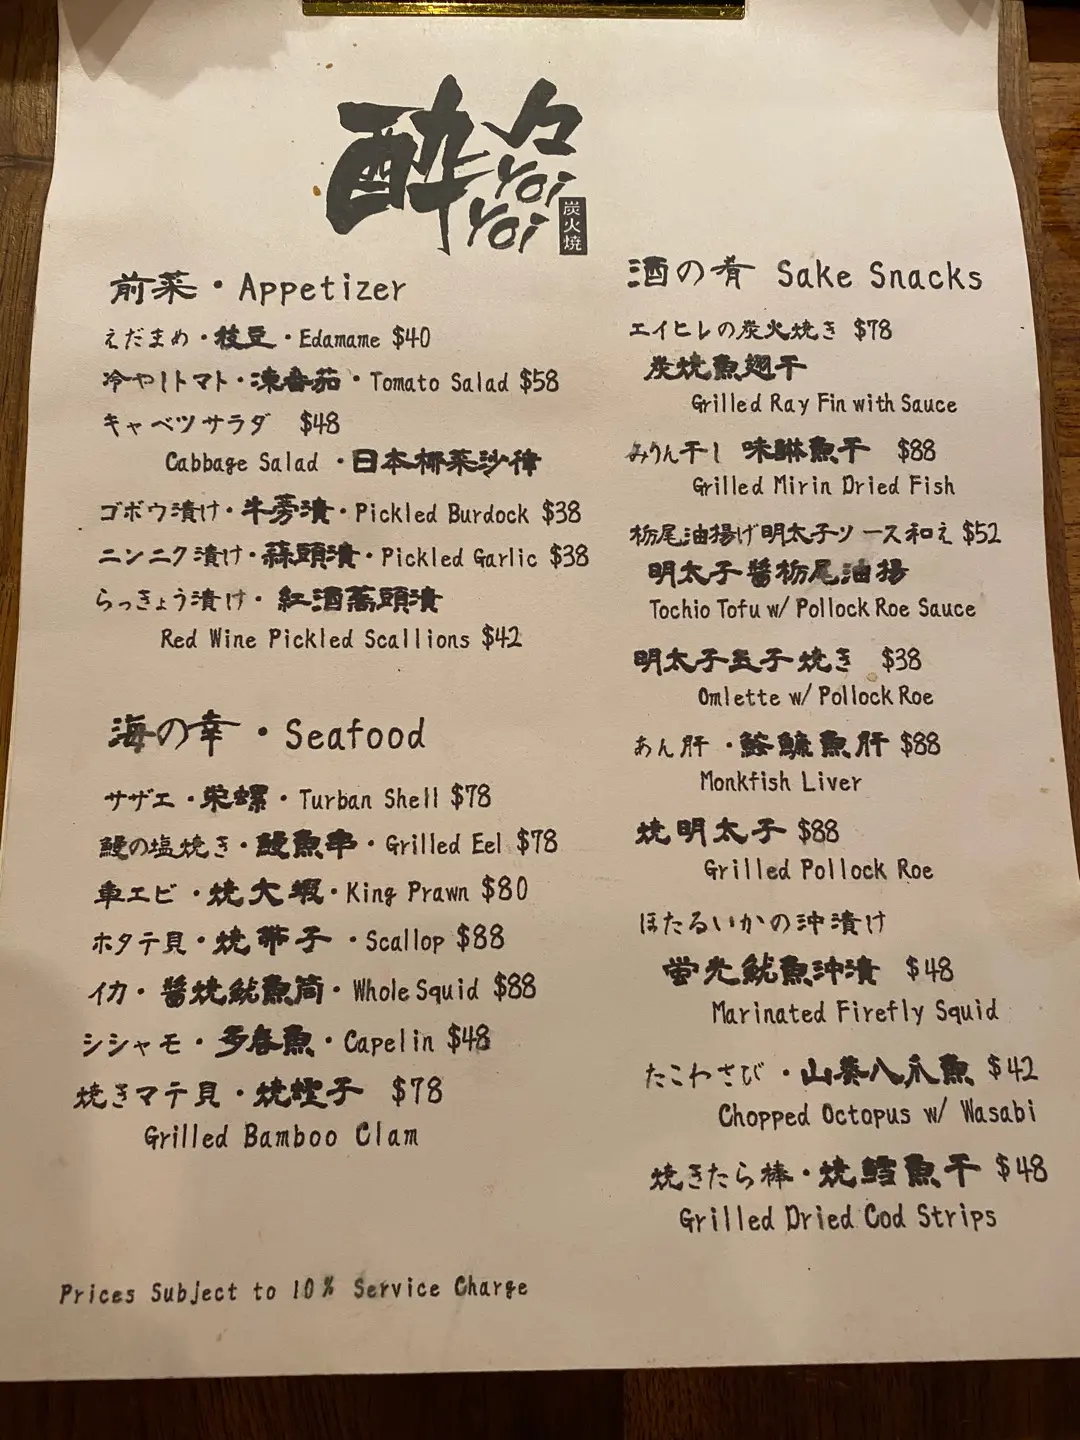 酔々
Yoi
Yoi
炭火焼
前菜・Appetizer
えだまめ・枝豆・Edamame $40
冷やしトマト・凍番茄・Tomato Salad $58
キャベツサラダ $48
Cabbage Salad ・日本椰菜沙律
ゴボウ漬け・牛蒡漬・Pickled Burdock $38
ニンニク漬け・蒜頭漬・Pickled Garlic $38
らっきょう漬け・紅酒蕎頭漬
Red Wine Pickled Scallions $42
海の幸・Seafood
サザエ・栄螺・Turban Shell $78
鰻の塩焼き・鰻魚串・Grilled Eel $78
車エビ・焼大蝦・King Prawn $80
ホタテ貝・焼帶子・Scallop $88
イカ・醬焼魷魚筒・Whole Squid $88
シシャモ・多春魚・Capelin $48
焼きマテ貝・焼蟶子 $78
Grilled Bamboo Clam
酒の肴 Sake Snacks
エイヒレの炭火焼き $78
炭焼魚翅干
Grilled Ray Fin with Sauce
みりん干し 味醂魚干 $88
Grilled Mirin Dried Fish
栃尾油揚げ明太子ソース和え $52
明太子醬栃尾油揚
Tochio Tofu w/ Pollock Roe Sauce
明太子玉子焼き $38
Omlette w/ Pollock Roe
あん肝・鮟鱇魚肝 $88
Monkfish Liver
焼明太子 $88
Grilled Pollock Roe
ほたるいかの沖漬け
螢光魷魚沖漬 $48
Marinated Firefly Squid
たこわさび・山葵八爪魚 $42
Chopped Octopus w/ Wasabi
焼きたら棒・焼鱈魚干 $48
Grilled Dried Cod Strips
Prices Subject to 10% Service Charge